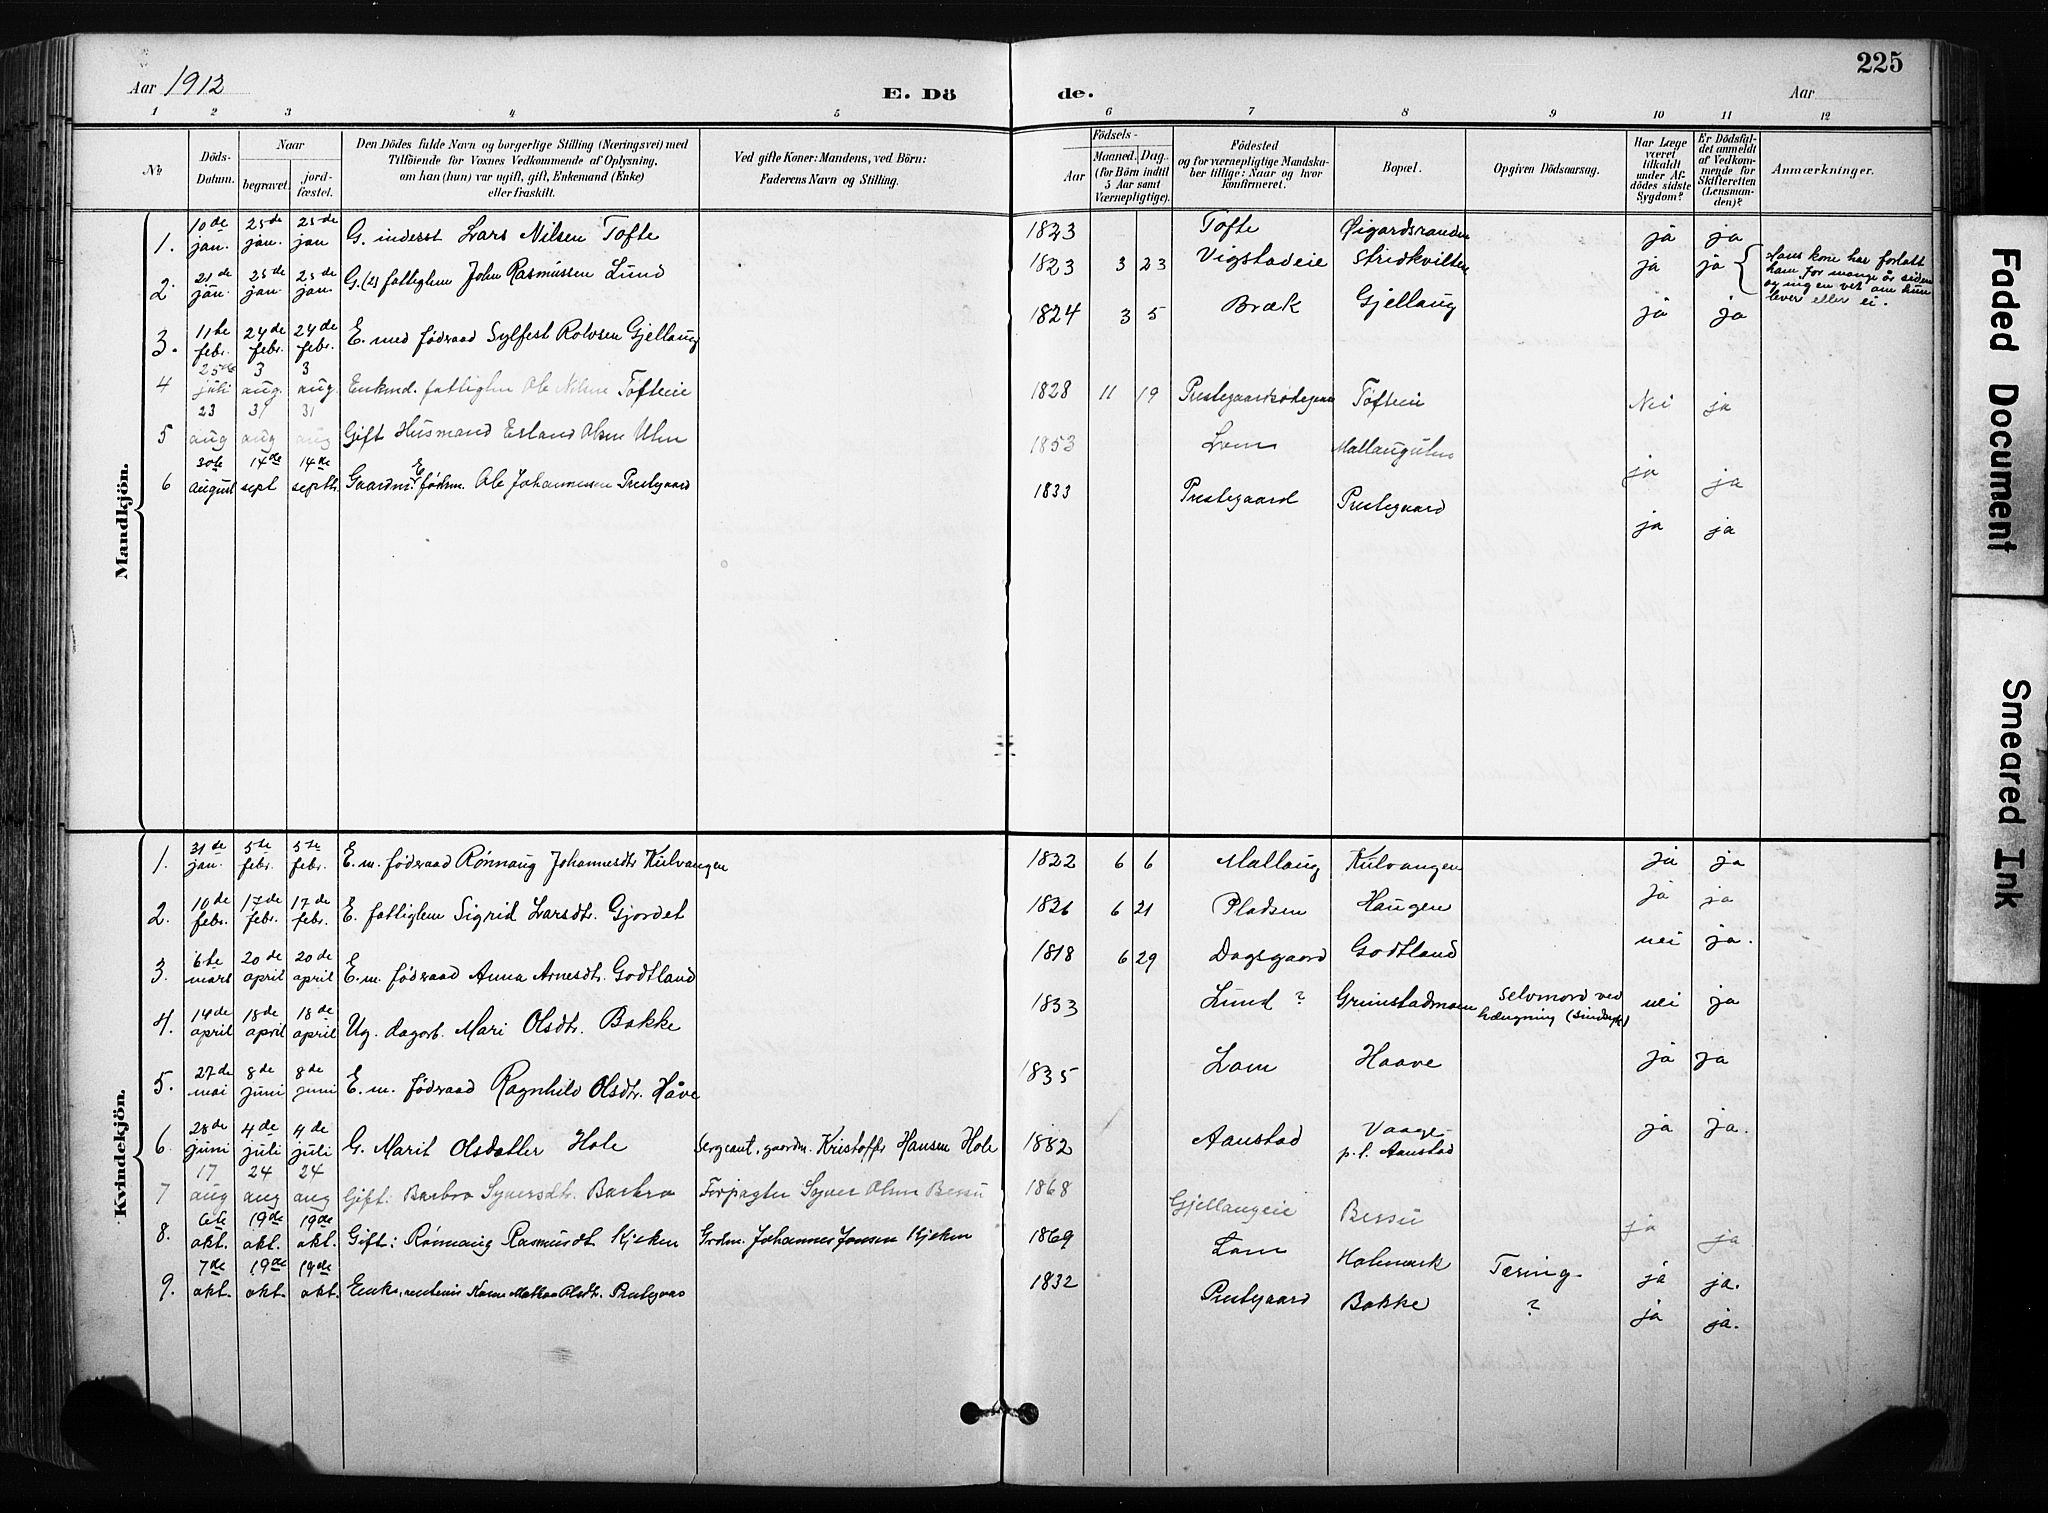 225
Aar 1912
E. Dö de.
Aar
1 2 3 4 5 6 7 8 9 10 11 12
№
Döds-Datum.
Naar
begravet.
jord-fæstet.
Den Dödes fulde Navn og borgerlige Stilling (Næringsvei) med
Tilföiende for Voxnes Vedkommende af Oplysning,
om han (hun) var ugift, gift, Enkemand (Enke)
eller fraskilt.
Ved gifte Koner: Mandens, ved Börn:
Faderens Navn og Stilling.
Födsels-
Aar
Maaned. Dag.
(for Börn indtil
5 Aar samt
Værnepligtige).
Födested
og for værnepligtige Mandska-
ber tillige: Naar og hvor
konfirmeret.
Bopæl.
Opgiven Dödsaarsag.
Har Læge
været
tilkaldt
under Af-
dödes sidste
Sygdom?
Er Dödsfal-
det anmeldt
af Vedkom-
mende for
Skifteretten
(Lensman-
den)?
Anmærkninger.
Mandkjön.
1. 10de jan. 25de jan. 25de jan G. inderst Lars Nilsen Tofte 1823 Tofte Øigardsranden ja ja
2. 21de jan. 25de jan 25de jan. G. (2) fattiglem John Rasmussen Lund 1823 3 23 Vigstadeie Stridkvilten ja ja
Hans kone har forlatt
ham for mange år siden
og ingen vet om hun
lever eller ei.
3. 11te febr. 24de febr. 24de febr. E. med föderaad Sylfest Rolvsen Gjellaug 1824 3 5 Bræk Gjellaug ja ja
4 25de juli 3 aug. 3 aug. Enkmd. fattiglem Ole Nilsen Tofteeie 1828 11 19 Tofteeie Nei ja
5 23 aug 31 aug 31 aug Gift Husmand Erland Olsen Ulen 1853 Lom Mallaugulen ja ja
6 30te august 14de sept 14de septbr. Gaardm. E födrm. Ole Johannessen Prestgaard 1833 Prestegaard Prestegaard ja ja
Kvindekjön.
1. 31de jan. 5te febr. 5te febr. E. m. föderaad Rönnaug Johannesdtr Kulvangen 1822 6 6 Mallaug Kulvangen ja ja
2. 10de febr. 17de febr. 17de febr. E. fattiglem Sigrid Larsdtr. Gjordet 1836 6 21 Pladsen Haugen ja ja
3. 6te mars 20de april 20de april E. m. föderaad Anna Arnesdtr. Godtland 1818 6 29 Dagsgaard Godtland nei ja.
4. 14de april 18de april 18de april Ug. dagarb. Mari Olsdtr. Bakke 1833 Lund ? Grimstadmoen Selvmord ved
hængning nei ja
5. 27de mai 8de juni 8de juni E. m. föderaad Ragnhild Olsdtr. Håve 1835 Lom Haave ja ja
6. 28de juni 4de juli 4de juli G. Marit Olsdatter Hole Sergeant, gaardm. Kristoffer Hansen Hole 1882 Aanstad Vaage
p.t. Aanstad ja ja.
7 17 aug 24 aug 24 aug Gift: Barbro Syversdtr. Forpagter Syver Olsen Bessu 1868 Gjellaugeie Bessu ja ja
8. 6te okt. 19de okt. 19de okt. Gift: Rönnaug Rasmusdt Kjæken Grdm. Johannes Jonsen Kjæken 1869 Lom Holemork Tæring ja ja.
9. 7de okt. 19de okt. 19de okt. Enke, Olsdtr. Prestgaard 1832 Prestgaard Bakke ? ja ja.
Faded Document
Smeared Ink